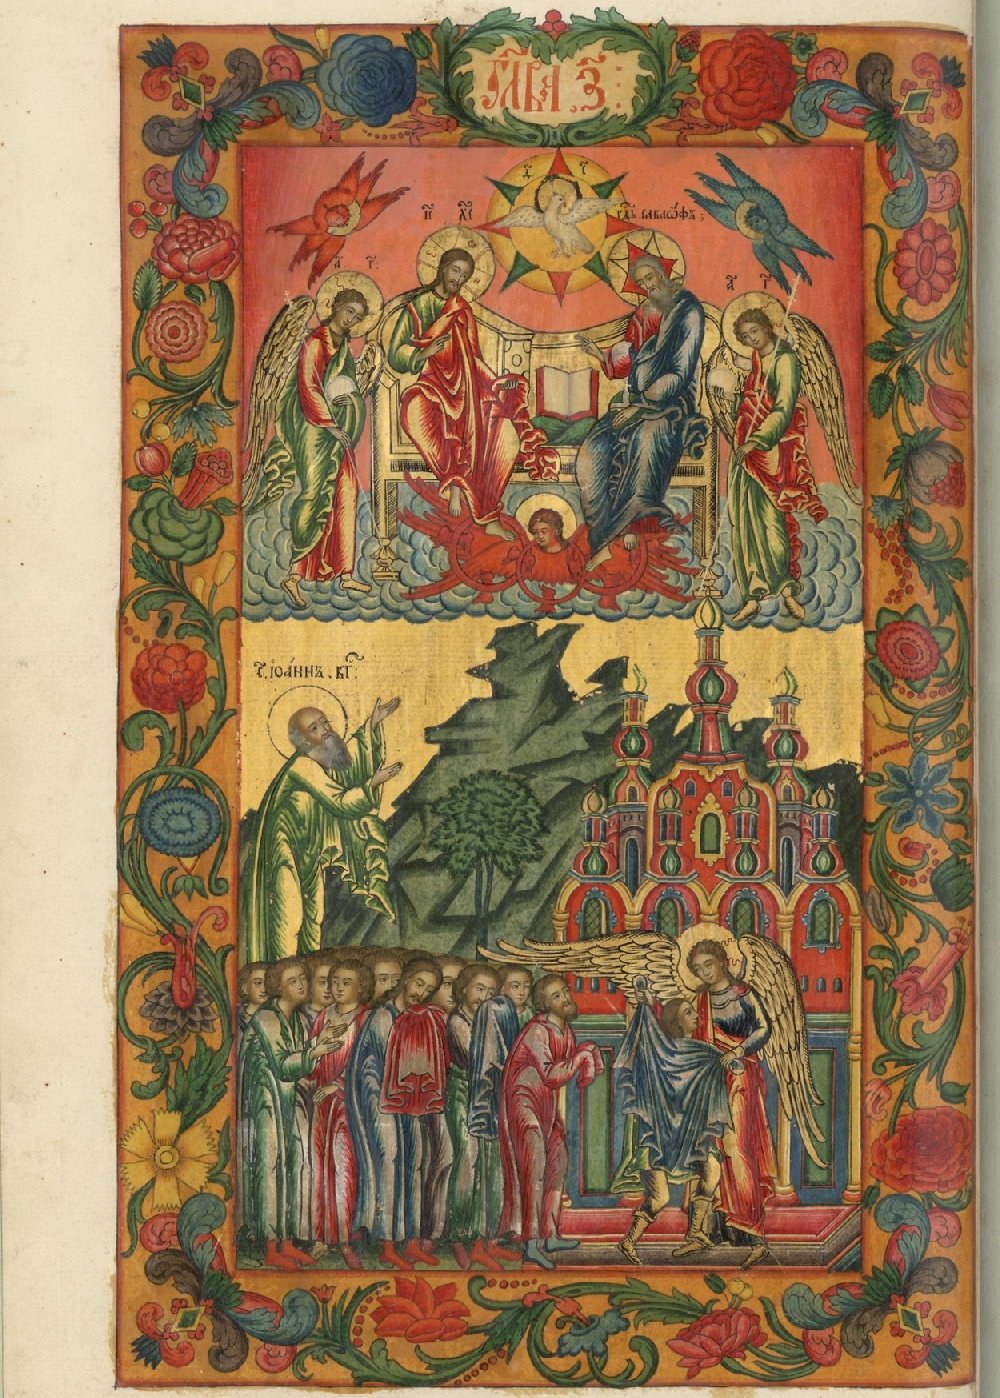 Глва з҃:
д҃ с҃
і҃с х҃с
гдь саваѡѳъ:
а҃ г҃:
а҃ г҃
с҃ іѡа́ннъ. бг҃: